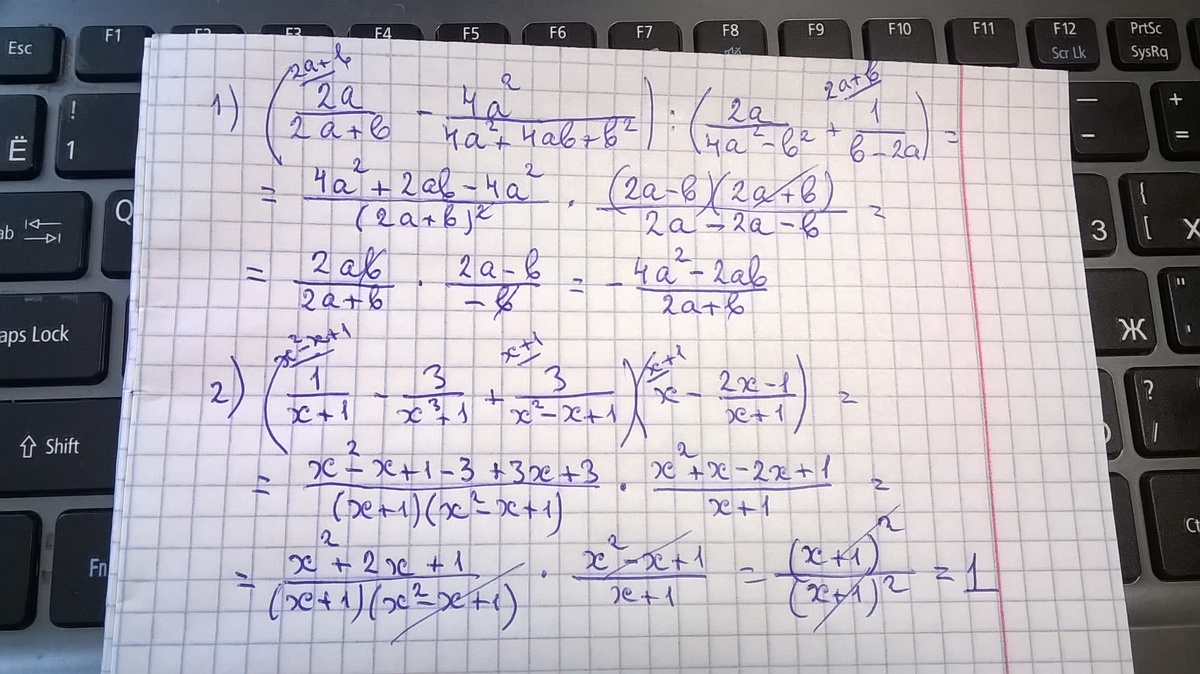 Esc F1 F2 F3 F4 F5 F6 F7 F8 F9 F10 F11 F12 Scr Lk PrtSc SysRq
1) (2a/(2a+b) - 4a²/(4a²+4ab+b²)) : (2a/(4a²-b²) + 1/(b-2a)) =
2a+b 2a+b
= (4a²+2ab-4a²)/(2a+b)² · (2a-b)(2a+b)/(2a-2a-b) =
= 2ab/(2a+b) · (2a-b)/(-b) = - (4a²-2ab)/(2a+b)
x²-x+1 x+1 x+1
2) (1/(x+1) - 3/(x³+1) + 3/(x²-x+1))(x - (2x-1)/(x+1)) =
= (x²-x+1-3+3x+3)/((x+1)(x²-x+1)) · (x²+x-2x+1)/(x+1) =
= (x²+2x+1)/((x+1)(x²-x+1)) · (x²-x+1)/(x+1) = (x+1)²/(x+1)² = 1
! 1
Ё
Q
aps Lock
Shift
Fn
— -
+ =
З
{ [ Х
Ж
" '
? /
Ct